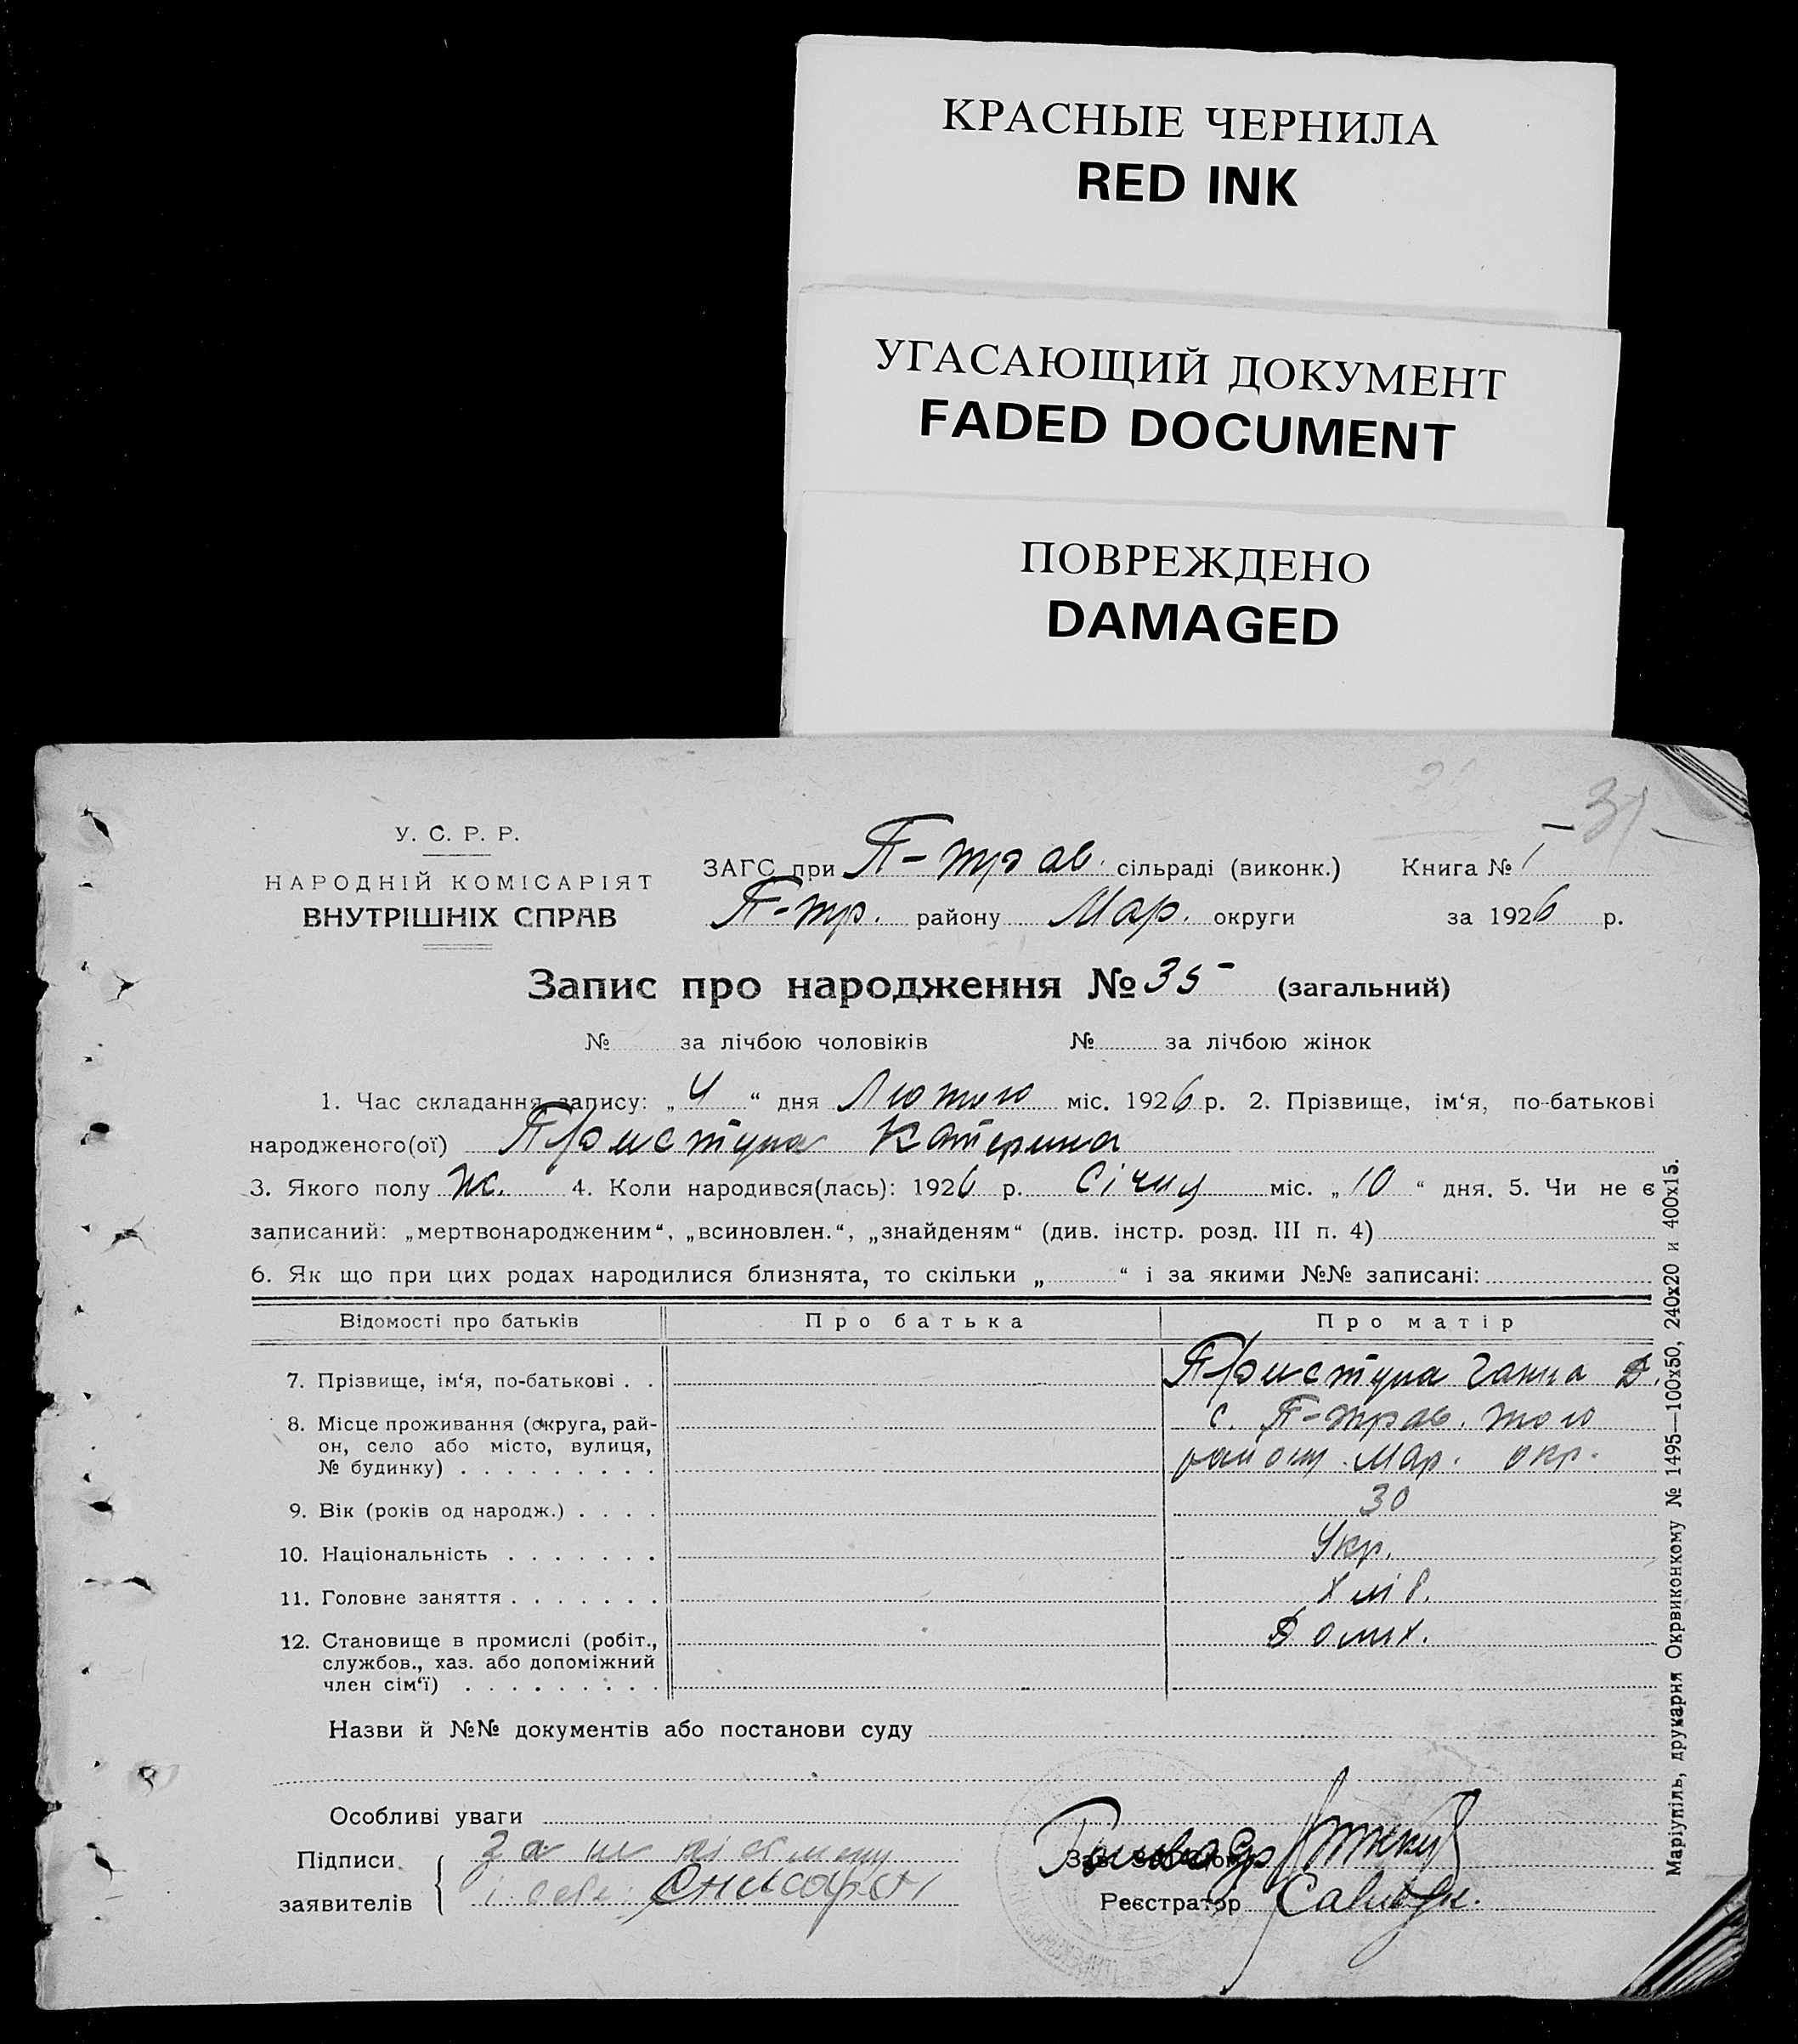 КРАСНЫЕ ЧЕРНИЛА
RED INK
УГАСАЮЩИЙ ДОКУМЕНТ
FADED DOCUMENT
ПОВРЕЖДЕНО
DAMAGED
31
У. С. Р. Р.
НАРОДНІЙ КОМІСАРІЯТ
ВНУТРІШНІХ СПРАВ
ЗАГС при П-трав. сільраді (виконк.) Книга № 1
П-тр. району Мар. округи за 1926 р.
Запис про народження № 35 (загальний)
№ за лічбою чоловіків № за лічбою жінок
1. Час складання запису: „4“ дня Лютого міс. 1926 р. 2. Прізвище, ім‘я, по-батькові
народженого(ої) Приступа Катерина
3. Якого полу ж. 4. Коли народився(лась): 1926 р. Січня міс. „10“ дня. 5. Чи не є
записаний: „мертвонародженим“, „всиновлен.“, „знайденям“ (див. інстр. розд. III п. 4)
6. Як що при цих родах народилися близнята, то скільки „ “ і за якими №№ записані:
Відомості про батьків Про батька Про матір
7. Прізвище, ім‘я, по-батькові . . Приступа Ганна Д.
8. Місце проживання (округа, рай- с. П-трав. того
он, село або місто, вулиця,
№ будинку) району Мар. окр.
9. Вік (років од народж.) . . . . 30
10. Національність Укр.
11. Головне заняття Хліб.
12. Становище в промислі (робіт., Домх.
службов., хаз. або допоміжний
член сім‘ї)
Назви й №№ документів або постанови суду
Особливі уваги
Підписи за не письмену
заявителів і себе
Реєстратор
Маріупіль, друкарня Окрвиконкому № 1495—100х50, 240х20 и 400х15.